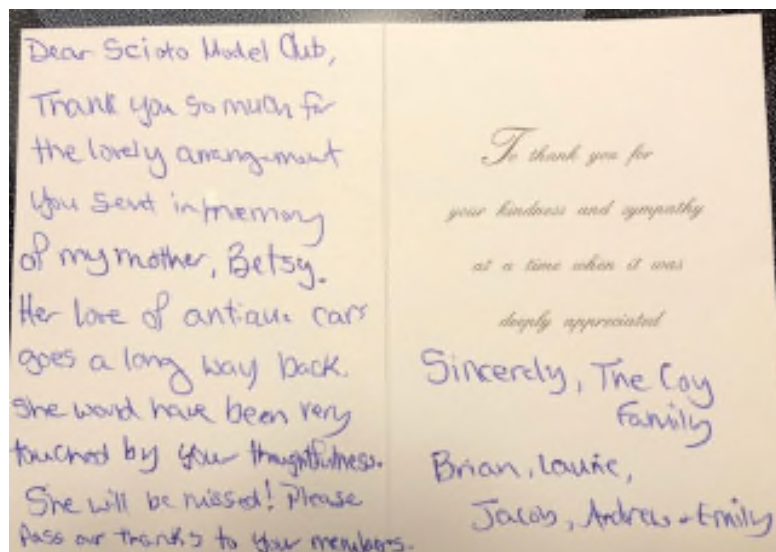 Dear Scioto Model Club,
Thank you so much for
the lovely arrangement
you sent in memory
of my mother, Betsy.
Her love of antique cars
goes a long way back.
She would have been very
touched by your thoughtfulness.
She will be missed! Please
pass our thanks to your members.
To thank you for
your kindness and sympathy
at a time when it was
deeply appreciated
Sincerely, The Coy
Family
Brian, Laurie,
Jacob, Andrew + Emily